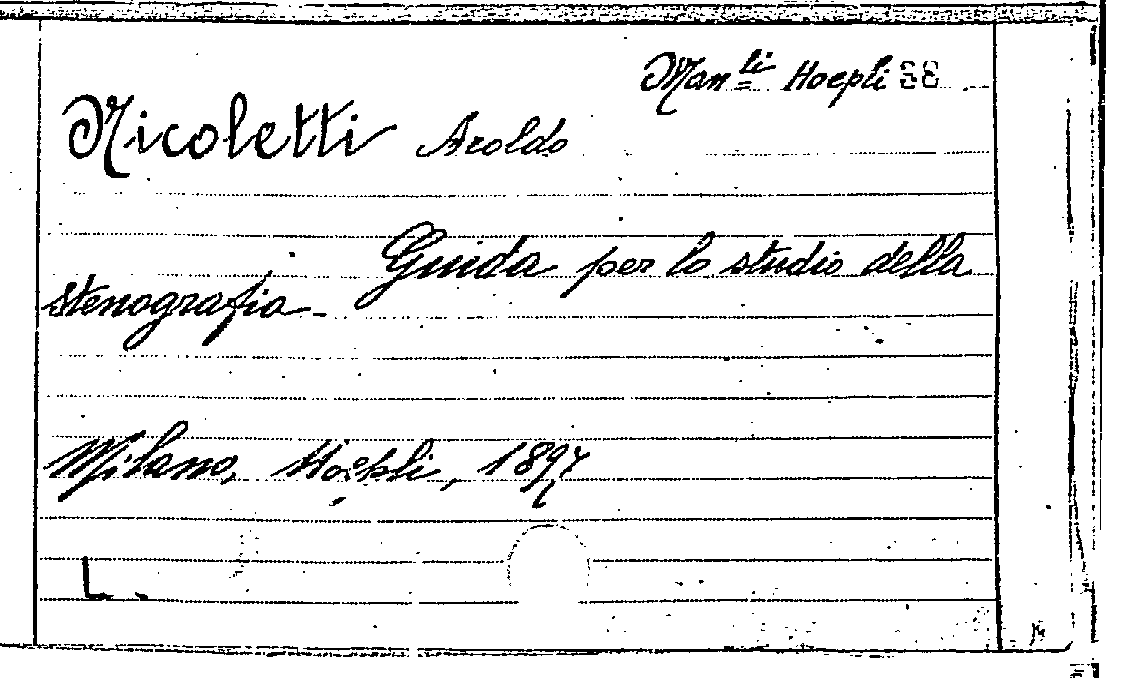 Man.li Hoepli 88
Nicoletti Aroldo
Guida per lo studio della
stenografia -
Milano, Hoepli, 1897
L.